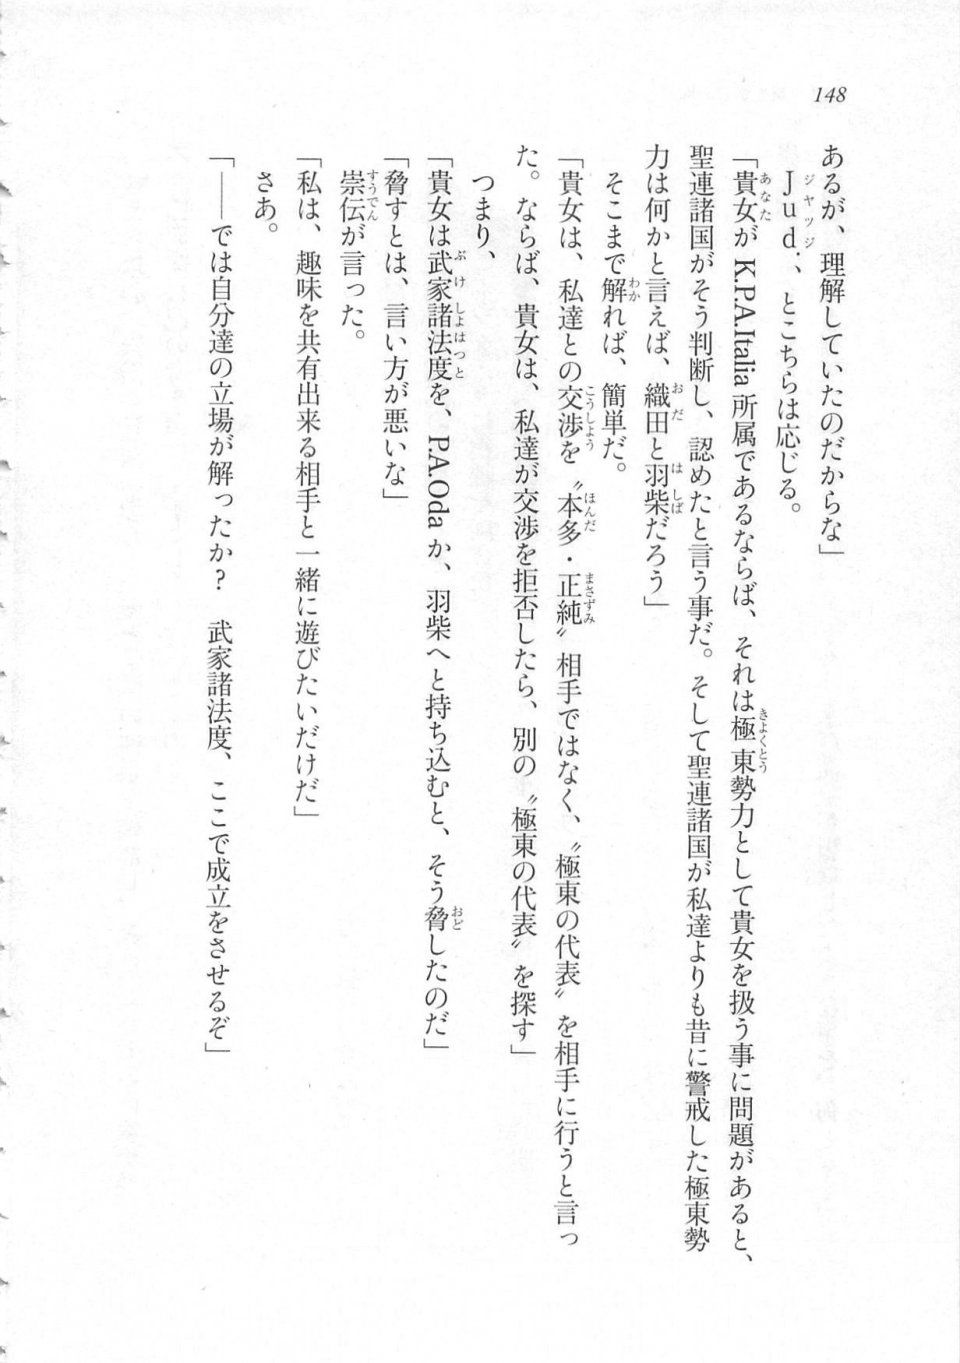 148
あるが、理解していたのだからな」
Ｊｕｄ．、とこちらは応じる。
「貴女が K.P.A.Italia 所属であるならば、それは極東勢力として貴女を扱う事に問題があると、
聖連諸国がそう判断し、認めたと言う事だ。そして聖連諸国が私達よりも昔に警戒した極東勢
力は何かと言えば、織田と羽柴だろう」
そこまで解れば、簡単だ。
「貴女は、私達との交渉を〝本多・正純〟相手ではなく、〝極東の代表〟を相手に行うと言っ
た。ならば、貴女は、私達が交渉を拒否したら、別の〝極東の代表〟を探す」
つまり、
「貴女は武家諸法度を、P.A.Oda か、羽柴へと持ち込むと、そう脅したのだ」
「脅すとは、言い方が悪いな」
崇伝が言った。
「私は、趣味を共有出来る相手と一緒に遊びたいだけだ」
さあ。
「――では自分達の立場が解ったか？　武家諸法度、ここで成立をさせるぞ」